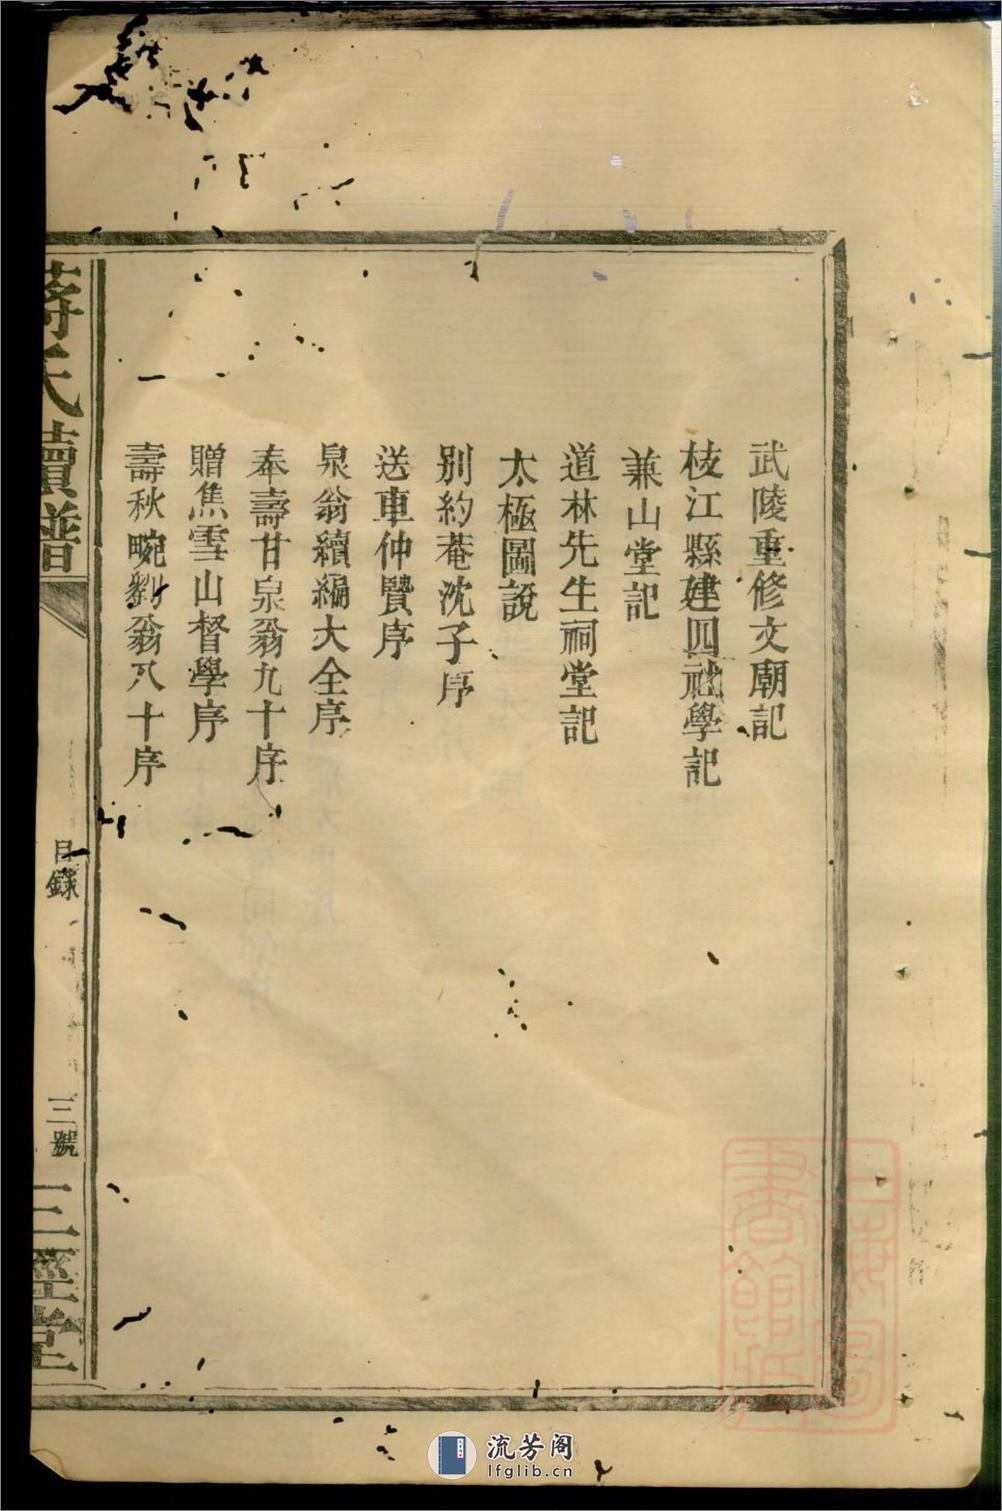 武陵重修文廟記
枝江縣建四社學記
兼山堂記
道林先生祠堂記
太極圖說
別約菴沈子序
送車仲賢序
泉翁續編大全序
奉壽甘泉翁九十序
贈焦雪山督學序
壽秋畹劉翁八十序
蔣氏續譜
目錄
三號
三徑堂
上海圖書館藏
流芳阁
lfglib.cn